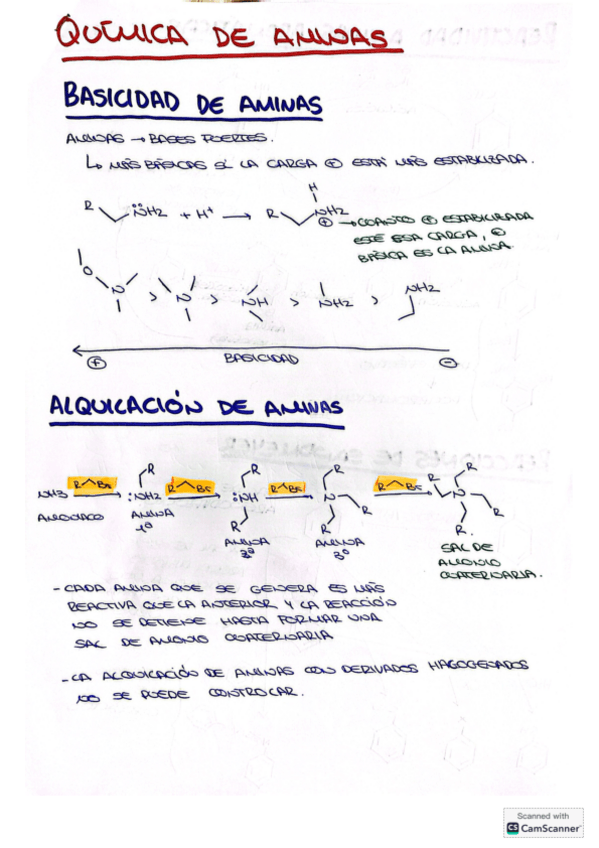 QUÍMICA DE AMINAS
BASICIDAD DE AMINAS
AMINAS → BASES FUERTES.
↳ MÁS BÁSICAS SI LA CARGA ⊕ ESTÁ MÁS ESTABILIZADA.
R NH2 + H+ → R H NH2 ⊕
→ CUANTO ⊕ ESTABILIZADA
ESTÉ ESA CARGA, ⊕
BÁSICA ES LA AMINA
O N > N > NH > NH2 > NH2
⊕ BASICIDAD ⊖
ALQUILACIÓN DE AMINAS
NH3 R Br → R :NH2 R Br → R :NH R R Br → R N R R R Br → R N R R
AMONIACO AMINA 1º AMINA 2º AMINA 3º SAL DE
AMONIO
CUATERNARIA.
- CADA AMINA QUE SE GENERA ES MÁS
REACTIVA QUE LA ANTERIOR Y LA REACCIÓN
NO SE DETIENE HASTA FORMAR UNA
SAL DE AMONIO CUATERNARIA
- LA ALQUILACIÓN DE AMINAS CON DERIVADOS HALOGENADOS
NO SE PUEDE CONTROLAR.
Scanned with
CS CamScanner